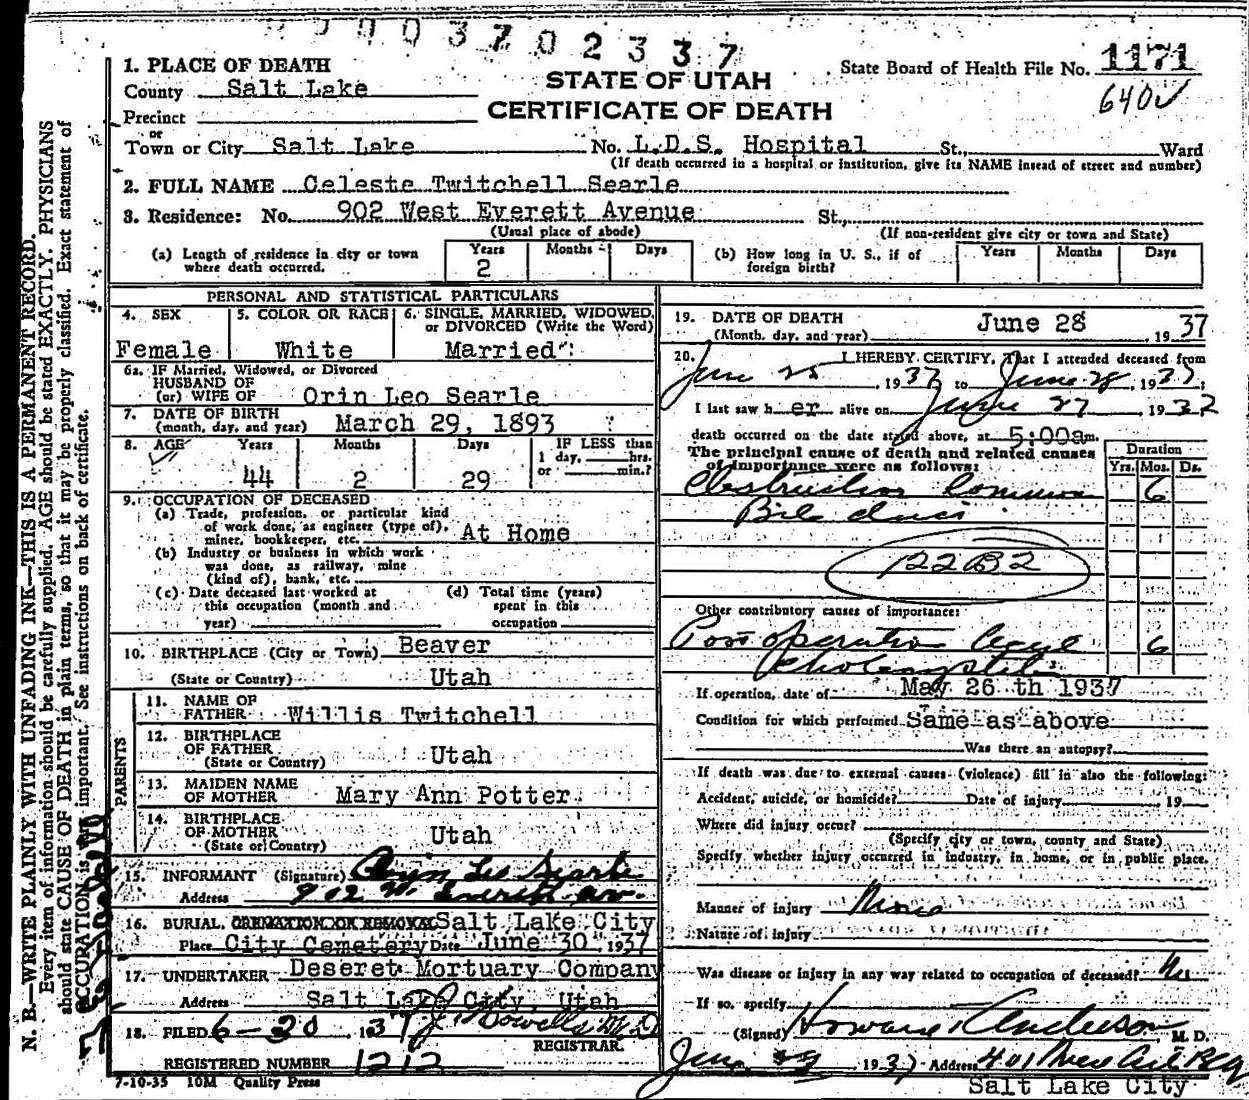 0 0 3 7 0 2 3 3 7
1. PLACE OF DEATH
County Salt Lake
Precinct
or
Town or City Salt Lake No. L.D.S. Hospital St., Ward
(If death occurred in a hospital or institution, give its NAME instead of street and number)
STATE OF UTAH
CERTIFICATE OF DEATH
State Board of Health File No. 1171
640
2. FULL NAME Celeste Twitchell Searle
3. Residence: No. 902 West Everett Avenue St.,
(Usual place of abode) (If non-resident give city or town and State)
(a) Length of residence in city or town where death occurred. Years 2 Months Days
(b) How long in U. S., if of foreign birth? Years Months Days
PERSONAL AND STATISTICAL PARTICULARS
4. SEX Female
5. COLOR OR RACE White
6. SINGLE, MARRIED, WIDOWED, or DIVORCED (Write the Word) Married
6a. IF Married, Widowed, or Divorced
HUSBAND OF
(or) WIFE OF Orin Leo Searle
7. DATE OF BIRTH
(month, day, and year) March 29, 1893
8. AGE Years 44 Months 2 Days 29
IF LESS than
1 day, hrs.
or min.?
9. OCCUPATION OF DECEASED
(a) Trade, profession, or particular kind
of work done, as engineer (type of),
miner, bookkeeper, etc. At Home
(b) Industry or business in which work
was done, as railway, mine
(kind of), bank, etc.
(c) Date deceased last worked at
this occupation (month and
year)
(d) Total time (years)
spent in this
occupation
10. BIRTHPLACE (City or Town) Beaver
(State or Country) Utah
PARENTS
11. NAME OF
FATHER Willis Twitchell
12. BIRTHPLACE
OF FATHER
(State or Country) Utah
13. MAIDEN NAME
OF MOTHER Mary Ann Potter
14. BIRTHPLACE
OF MOTHER
(State or Country) Utah
15. INFORMANT (Signature) Orin Leo Searle
Address 902 W. Everett Av.
16. BURIAL, CREMATION OR REMOVAL Salt Lake City
Place City Cemetery Date June 30 1937
17. UNDERTAKER Deseret Mortuary Company
Address Salt Lake City, Utah
18. FILED 6-30 1937 Howells M D
REGISTRAR.
REGISTERED NUMBER 1212
7-10-35 10M Quality Press
19. DATE OF DEATH
(Month, day, and year) June 28 1937
20. I HEREBY CERTIFY, That I attended deceased from
June 25, 1937 to June 28, 1937;
I last saw her alive on June 27 1937
death occurred on the date stated above, at 5:00am.
The principal cause of death and related causes
of importance were as follows:
Duration
Yrs. Mos. Ds.
Obstruction Common 6
Bile duct
122B2
Other contributory causes of importance:
Post operative 6
If operation, date of May 26 th 1937
Condition for which performed Same as above
Was there an autopsy?
If death was due to external causes (violence) fill in also the following:
Accident, suicide, or homicide? Date of injury 19
Where did injury occur?
(Specify city or town, county and State)
Specify whether injury occurred in industry, in home, or in public place.
Manner of injury None
Nature of injury
Was disease or injury in any way related to occupation of deceased? No
If so, specify
(Signed) Howard Anderson M. D.
June 1937 Address 401 Med Art Bldg
Salt Lake City
N. B.—WRITE PLAINLY WITH UNFADING INK—THIS IS A PERMANENT RECORD.
Every item of information should be carefully supplied. AGE should be stated EXACTLY. PHYSICIANS
should state CAUSE OF DEATH in plain terms, so that it may be properly classified. Exact statement of
OCCUPATION is very important. See instructions on back of certificate.